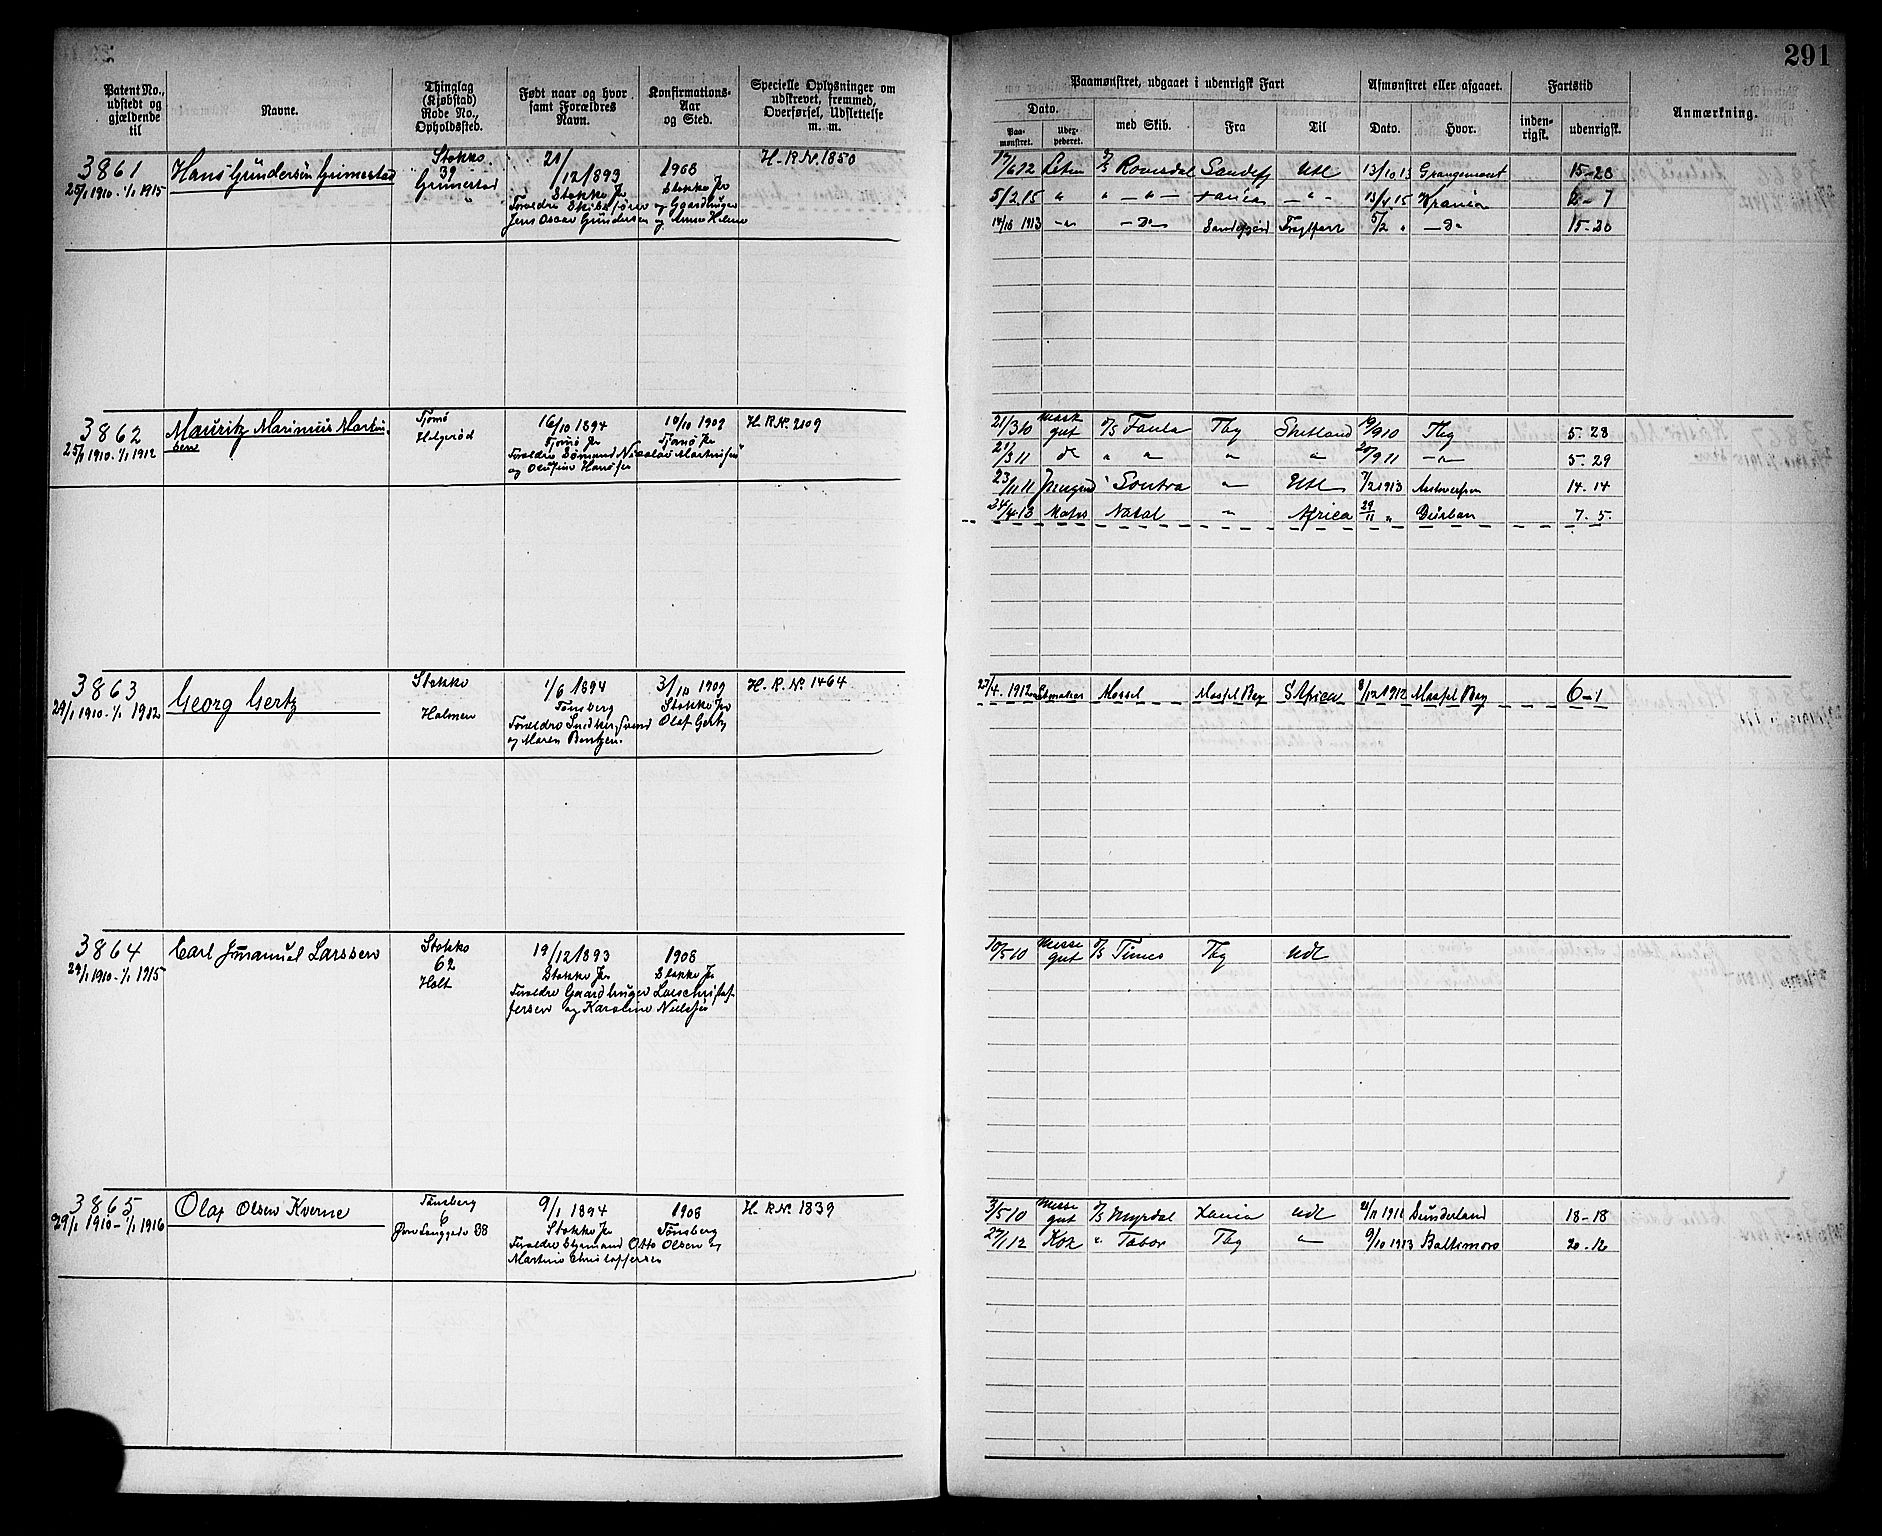 291
Patent No., udstedt og gjældende til
Navne.
Thinglag (Kjøbstad) Rode No., Opholdssted.
Født naar og hvor samt Forældres Navn.
Konfirmations-Aar og Sted.
Specielle Oplysninger om udskrevet, fremmed, Overførsel, Udslettelse m. m.
Paamønstret, udgaaet i udenrigsk Fart
Afmønstret eller afgaaet.
Fartstid
Anmærkning.
Dato.
Paamønstret.
med Skib.
Fra
Til
Dato.
Hvor.
indenrigsk.
udenrigsk.
3861
25/1 1910 - 1/1 1915
Hans Gundersen Grimestad
Stokke
39
Grimestad
21/12 1893
Stokke
Forældre
Jens Oscar Gundersen
1908
Stokke
og Gaardbruger
og Anna
H. R. Nr. 1850
17/6 12 Romsdal Sandefj Utl 13/10 13 Grangemout 15-26
5/2 15 " " — " — — " — 13/4 15 Krania 2-7
14/10 1913 — " — — D — Sandefjord 5/2 " — D " 15-20
3862
25/1 1910 - 1/1 1912
Mauritz Marinius Martinsen
Tjømø
Helgerød
16/10 1894
Tjømø
Forældre Sømand Nicolai Martinsen
og Hansen
10/10 1909
Tjømø
H. R. Nr. 2109
21/3 10 Maskgut D/S Faula Tbg Shetland 19/9 10 Tbg 5-28
21/3 11 do " " " " 20/9 11 — " — 5-29
23/11 11 Jungmd " Sontra " Utl 7/2 1913 Antwerpen 14-14
24/4 13 Matros Natal " Africa 29/11 " Durban 7.5.
3863
29/1 1910 - 1/1 1912
Georg Gertz
Stokke
Holmen
1/6 1894
Tønsberg
Forældre
og Maren Bentzen.
3/10 1909
Stokke
Olaf Gertz
H. R. Nr. 1464
27/4 1912 Mossel Mossel Bay S Africa 8/12 1912 Mossel Bay 6-1
3864
29/1 1910 - 1/1 1915
Carl Imanuel Larssen
Stokke
62
Holt
19/12 1893
Stokke
Forældre Gaardbruger Lars Christoffersen og Karoline Nielsen
1908
Stokke
10/5 10 Messegut D/S Times Tbg Udl
3865
29/1 1910 - 1/1 1916
Olaf Olsen Kverne
Tønsberg
6
Øvre Langgade 38
9/1 1894
Stokke
Forældre Styrmand Otto Olsen og
Martine Christoffersen
1908
Tønsberg
H. R. Nr. 1839
3/5 10 Messegut D/S Myrdal Xania Udl 21/11 1911 Sunderland 18-18
27/1 12 Kok " Tabor Tbg " 9/10 1913 Baltimore 20-12